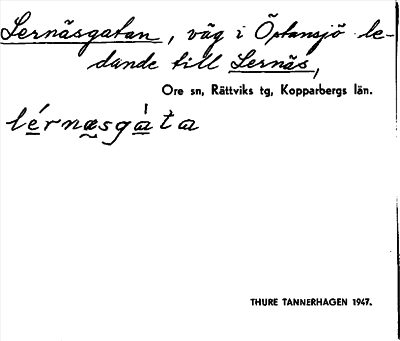 Lernäsgatan, väg i Östansjö le-
dande till Lernäs,
Ore sn, Rättviks tg, Kopparbergs län.
lérnæsgàta
THURE TANNERHAGEN 1947.